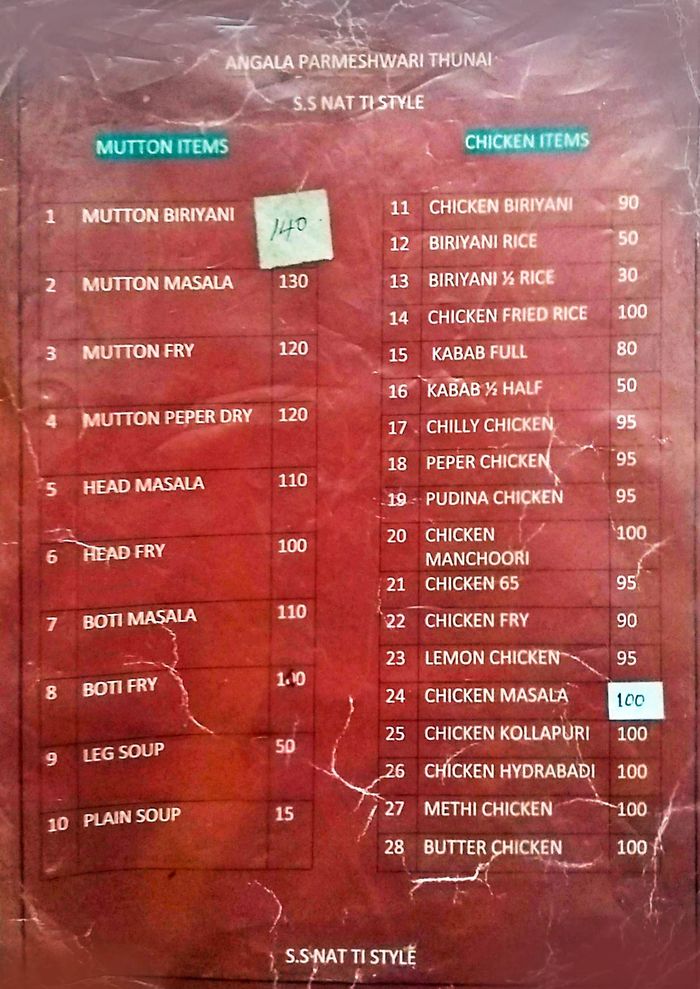 ANGALA PARMESHWARI THUNAI
S.S NAT TI STYLE
MUTTON ITEMS
1 MUTTON BIRIYANI 140
2 MUTTON MASALA 130
3 MUTTON FRY 120
4 MUTTON PEPER DRY 120
5 HEAD MASALA 110
6 HEAD FRY 100
7 BOTI MASALA 110
8 BOTI FRY
9 LEG SOUP 50
10 PLAIN SOUP 15
CHICKEN ITEMS
11 CHICKEN BIRIYANI 90
12 BIRIYANI RICE 50
13 BIRIYANI ½ RICE 30
14 CHICKEN FRIED RICE 100
15 KABAB FULL 80
16 KABAB ½ HALF 50
17 CHILLY CHICKEN 95
18 PEPER CHICKEN 95
19 PUDINA CHICKEN 95
20 CHICKEN 100
MANCHOORI
21 CHICKEN 65 95
22 CHICKEN FRY 90
23 LEMON CHICKEN 95
24 CHICKEN MASALA 100
25 CHICKEN KOLLAPURI 100
26 CHICKEN HYDRABADI 100
27 METHI CHICKEN 100
28 BUTTER CHICKEN 100
S.S NAT TI STYLE